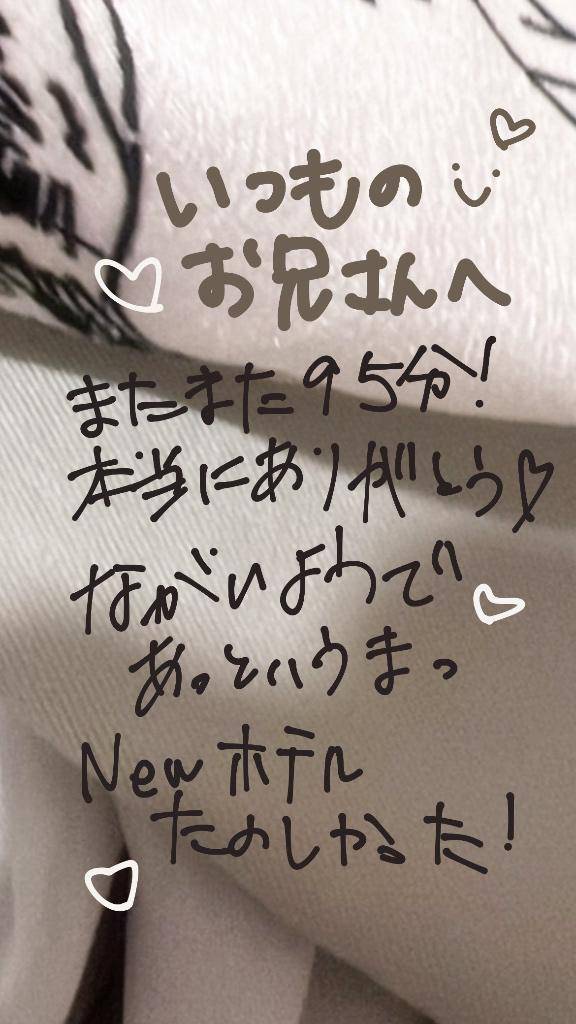 いつもの
お兄さんへ
またまた95分!
本当にありがとう♡
ながいようで
あっというまっ
Newホテル
たのしかった!